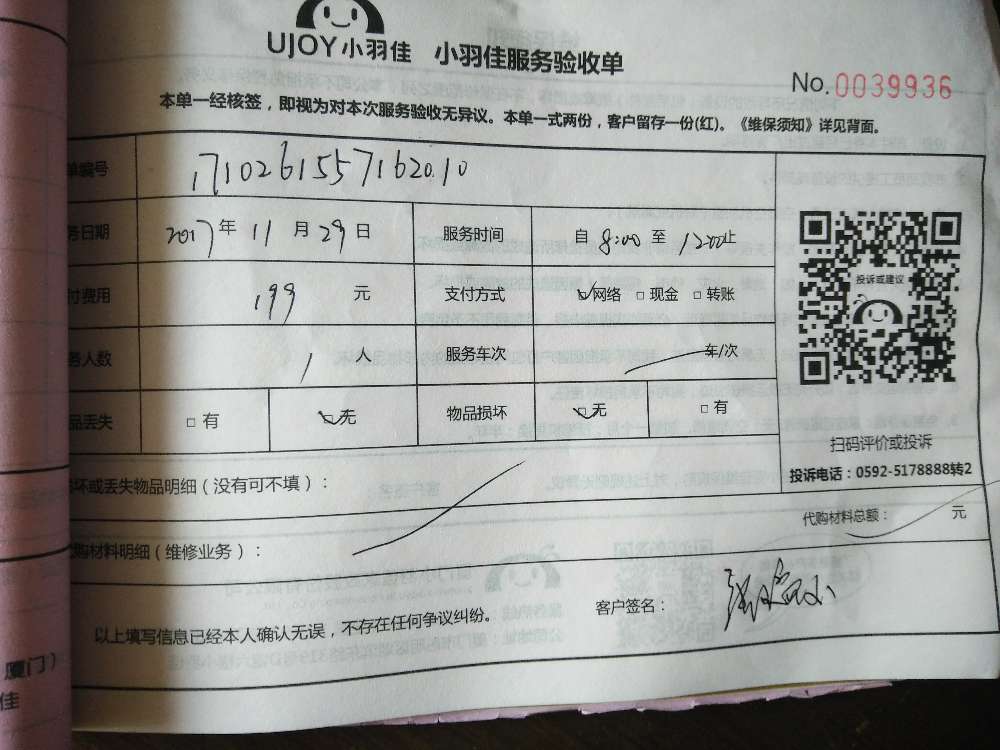 UJOY小羽佳 小羽佳服务验收单
No.0039936
本单一经核签，即视为对本次服务验收无异议。本单一式两份，客户留存一份(红)。《维保须知》详见背面。
单编号 17102615571620.10
务日期 2017年11月29日 服务时间 自8:00至1200止
付费用 199元 支付方式 ☑网络 □现金 □转账
务人数 1人 服务车次 车/次
品丢失 □有 ☑无 物品损坏 ☑无 □有
投诉或建议
扫码评价或投诉
投诉电话：0592-5178888转2
坏或丢失物品明细（没有可不填）：
代购材料总额： 元
购材料明细（维修业务）：
客户签名：
以上填写信息已经本人确认无误，不存在任何争议纠纷。
厦门）
佳